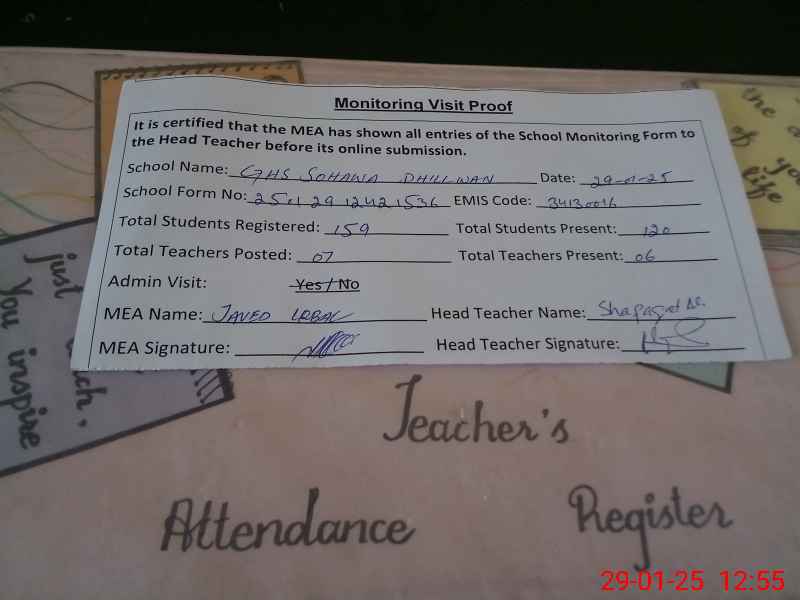 Monitoring Visit Proof
It is certified that the MEA has shown all entries of the School Monitoring Form to
the Head Teacher before its online submission.
School Name: GHS SOHAWA DHILLWAN Date: 29-01-25
School Form No: 2501 29 1242 1536 EMIS Code: 34130016
Total Students Registered: 159 Total Students Present: 120
Total Teachers Posted: 07 Total Teachers Present: 06
Admin Visit: Yes / No
MEA Name: JAVED Head Teacher Name:
MEA Signature: Head Teacher Signature:
just
each,
You inspire
the
of you
life
Teacher's
Attendance Register
29-01-25 12:55